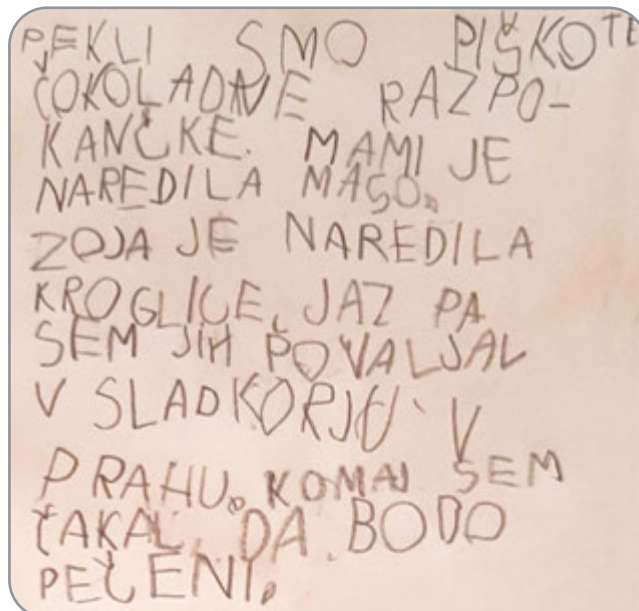 PEKLI SMO PIŠKOTE
ČOKOLADNE RAZPO-
KANČKE. MAMI JE
NAREDILA MASO.
ZOJA JE NAREDILA
KROGLICE, JAZ PA
SEM JIH POVALJAL
V SLADKORJU V
PRAHU. KOMAJ SEM
ČAKAL, DA BODO
PEČENI.